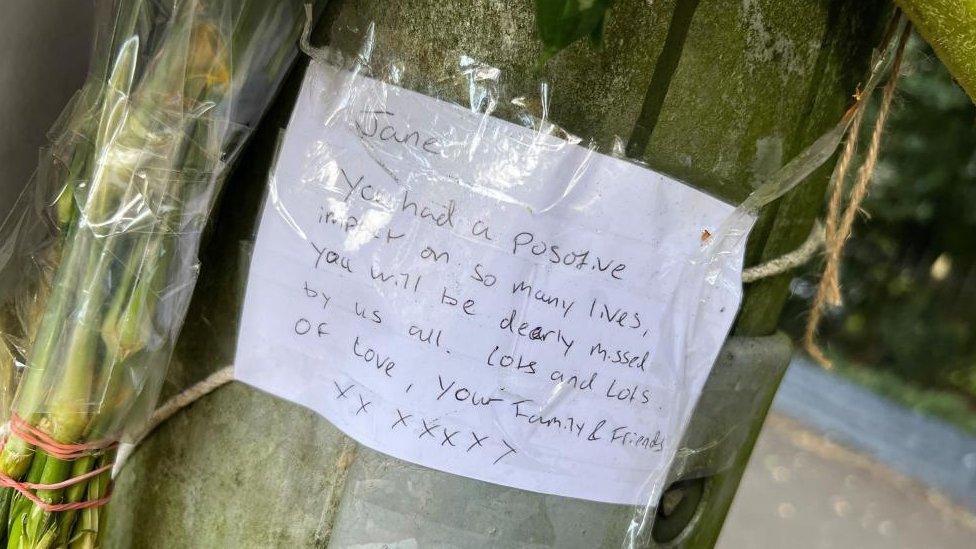 Jane
You had a Posotive
impact on so many lives,
you will be dearly missed
by us all. lots and lots
of love, your Family & Friends
xx xxxxx